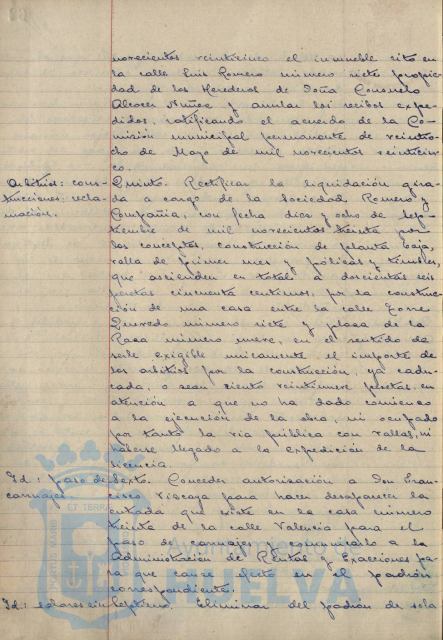 novecientos veinticinco el inmueble sito en
la calle Luis Romero número siete propie-
dad de los Herederos de Doña Consuelo
Alcocer Nuñez y anular los recibos expe-
didos, ratificando el acuerdo de la Co-
misión municipal permanente de veintio-
cho de Mayo de mil novecientos veinticin-
co.
Arbitrios: cons- Quinto. Rectificar la liquidación gira-
trucciones: recla- da a cargo de la Sociedad Romero y
mación. Compañía, con fecha diez y ocho de Sep-
tiembre de mil novecientos treinta por
los conceptos, construcción de planta baja,
valla de primer mes y pólizas y timbres,
que ascienden en total a doscientas seis
pesetas cincuenta centimos, por la construc-
ción de una casa entre la calle Torre
Quevedo número siete y plaza de la
Raza número nueve, en el sentido de
serle exigible unicamente el importe de
los arbitrios por la construcción, ya cadu-
cada, o sean ciento veintinueve pesetas, en
atención a que no ha dado comienzo
a la ejecución de la obra, ni ocupado
por tanto la via pública con vallas, ni
haberse llegado a la expedición de la
licencia.
Id: paso de Sexto. Conceder autorización a Don Fran-
carruajes. cisco Vizcaya para hacer desaparecer la
entrada que existe en la casa número
treinta de la calle Valencia para el
paso de carruajes y comunicarlo a la
Administración de Rentas y Exacciones pa-
ra que cause efecto en el padrón
correspondiente.
Id: solares sin Séptimo. Eliminar del padrón de sola